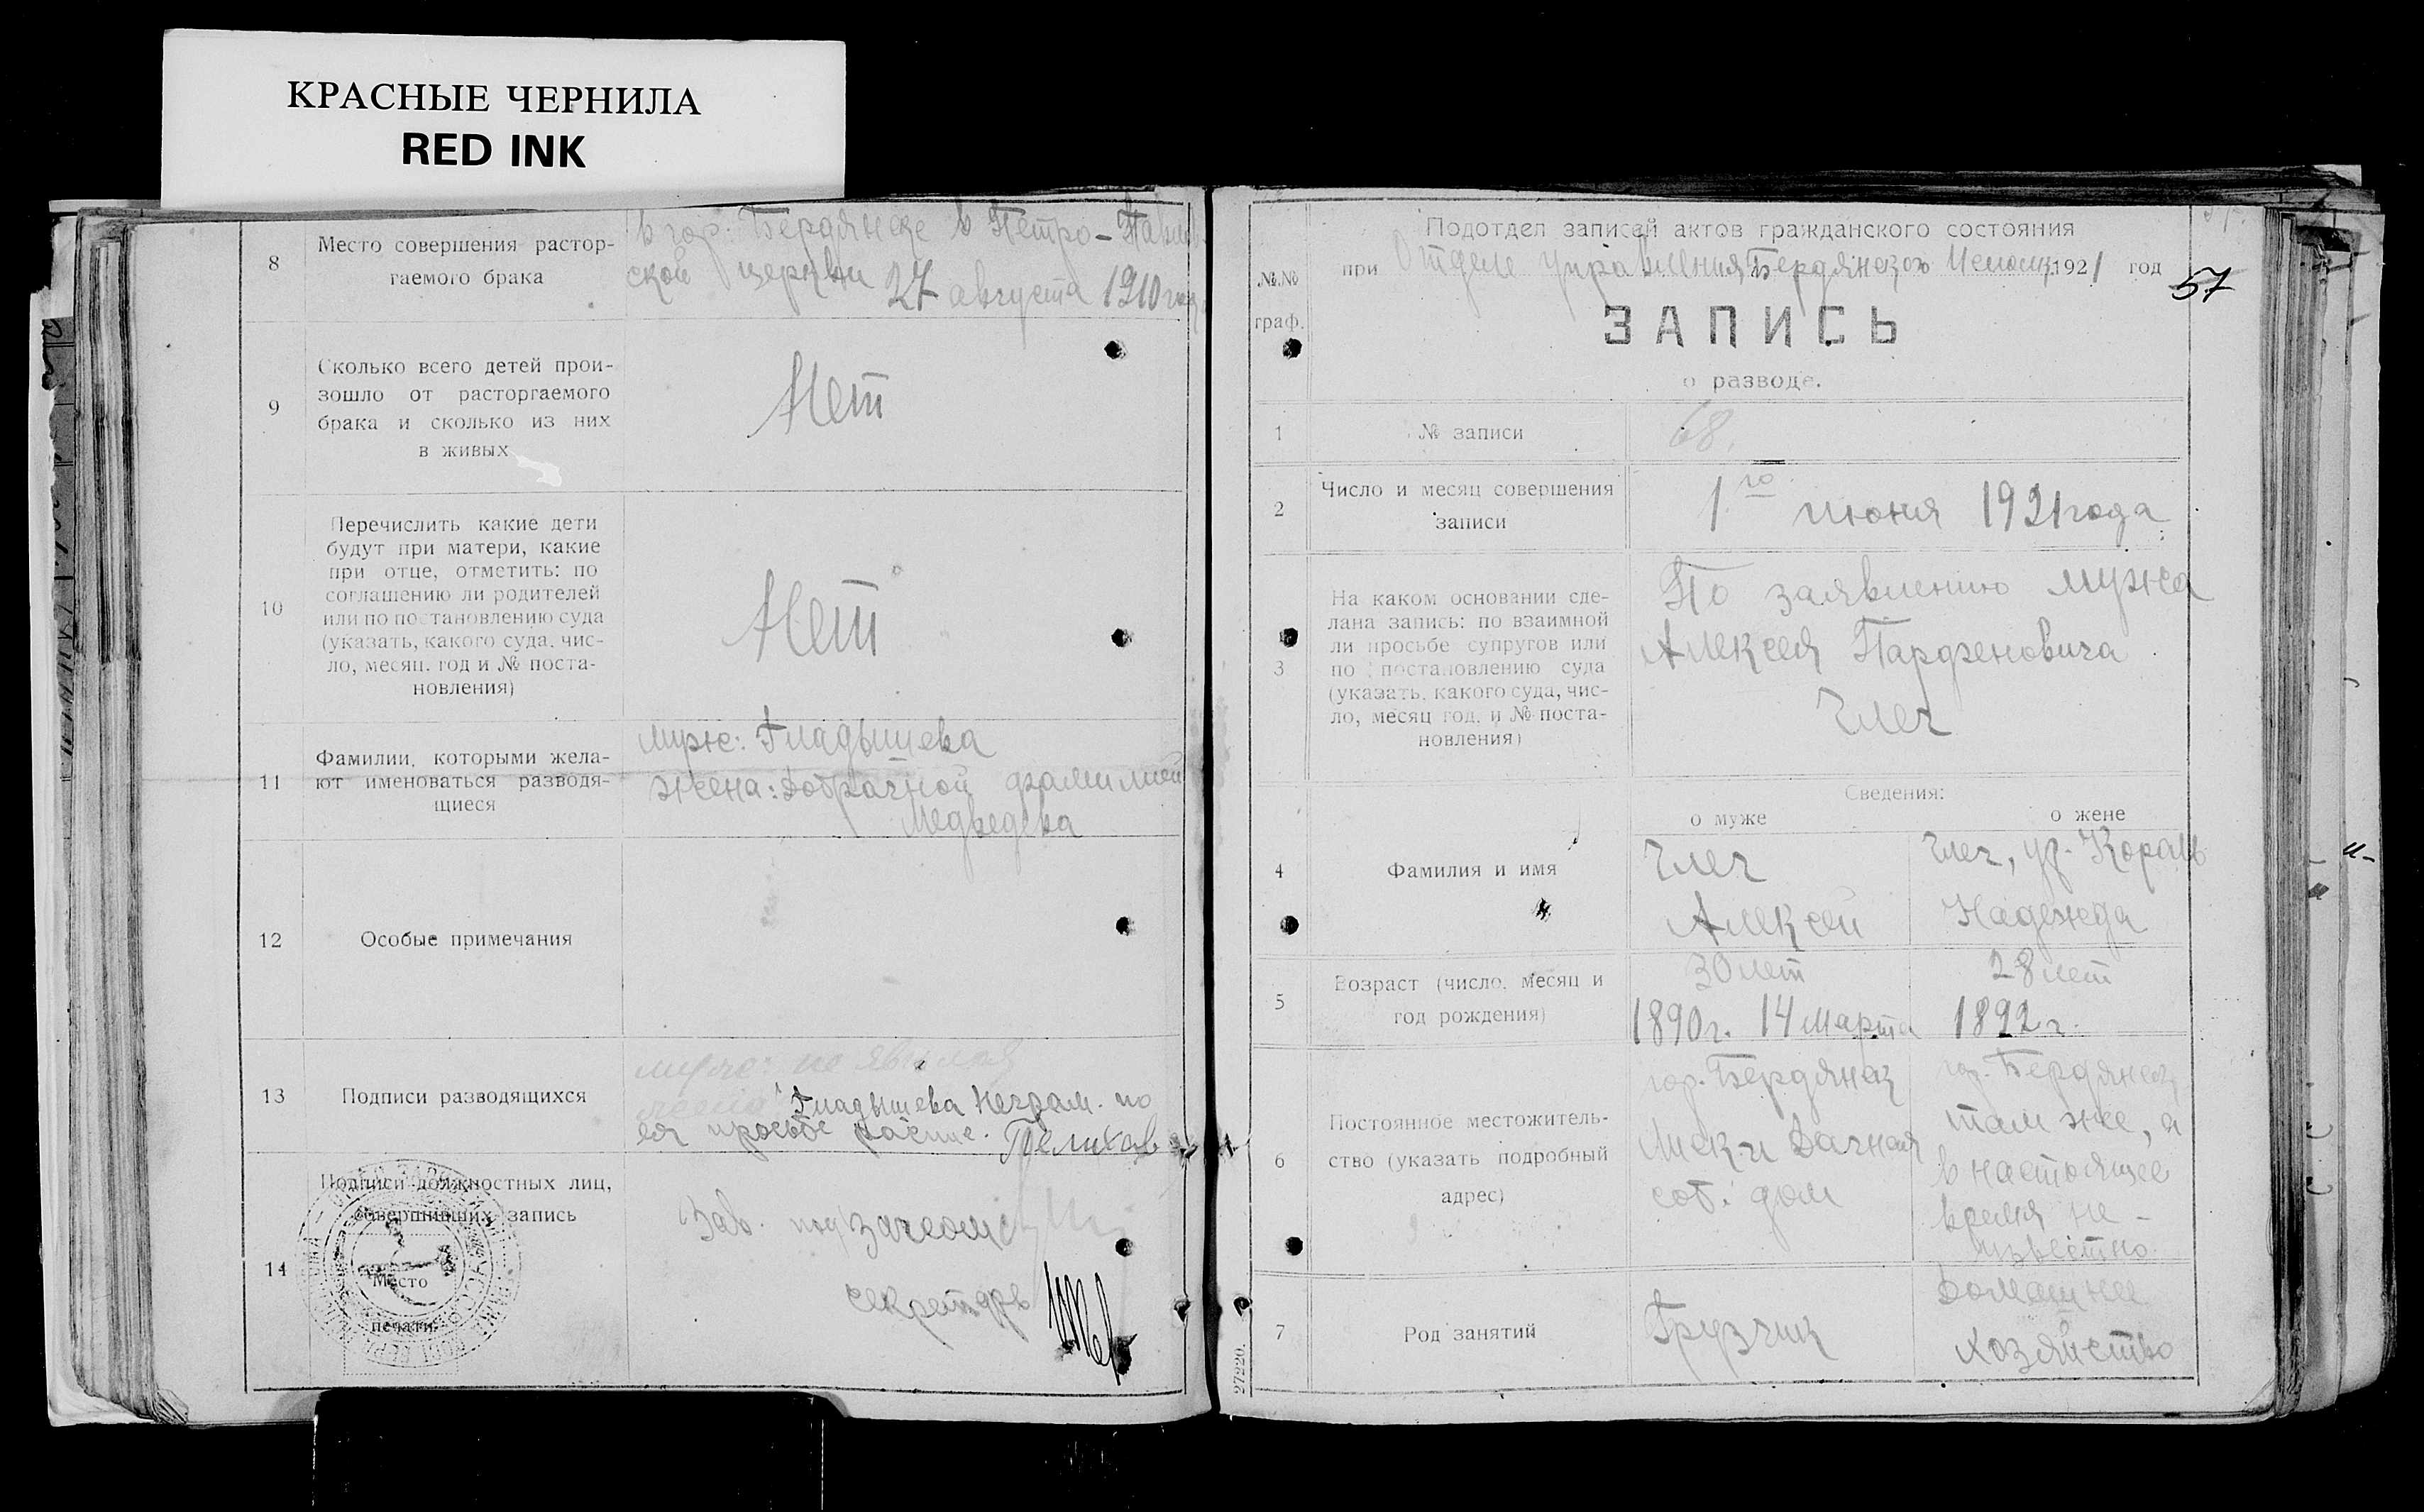 КРАСНЫЕ ЧЕРНИЛА
RED INK
8
Место совершения растор-
гаемого брака
в гор. Бердянске в Петро-Павлов-
ской церкви 27 августа 1910 года
9
Сколько всего детей прои-
зошло от расторгаемого
брака и сколько из них
в живых
Нет
10
Перечислить какие дети
будут при матери, какие
при отце, отметить: по
соглашению ли родителей
или по постановлению суда
(указать, какого суда, чис-
ло, месяц, год и № поста-
новления)
Нет
11
Фамилии, которыми жела-
ют именоваться разводя-
щиеся
муж: Гладышева
жена: добрачной фамилией
Медведева
12
Особые примечания
13
Подписи разводящихся
муж: не явился
Гладышева неграм. по
ея просьбе
14
Подписи должностных лиц,
совершивших запись
Место
печати
Зав.
секретарь
Подотдел записей актов гражданского состояния
при Отделе Управления Бердянского 1921 год
57
№№
граф.
ЗАПИСЬ
о разводе.
1
№ записи
68.
2
Число и месяц совершения
записи
1го июня 1921 года
3
На каком основании сде-
лана запись: по взаимной
ли просьбе супругов или
по постановлению суда
(указать, какого суда, чис-
ло, месяц год, и № поста-
новления)
По заявлению мужа
Алексея Парфеновича
Глеч
Сведения:
о муже
о жене
4
Фамилия и имя
Глеч
Алексей
Глеч, ур. Король
Надежда
5
Возраст (число, месяц и
год рождения)
30 лет
1890 г. 14 марта
28 лет
1892 г.
6
Постоянное местожитель-
ство (указать подробный
адрес)
гор. Бердянск
Дачная
соб. дом
гор. Бердянск
там же, а
в настоящее
время не-
известно
7
Род занятий
Грузчик
Домашнее
хозяйство
27220.